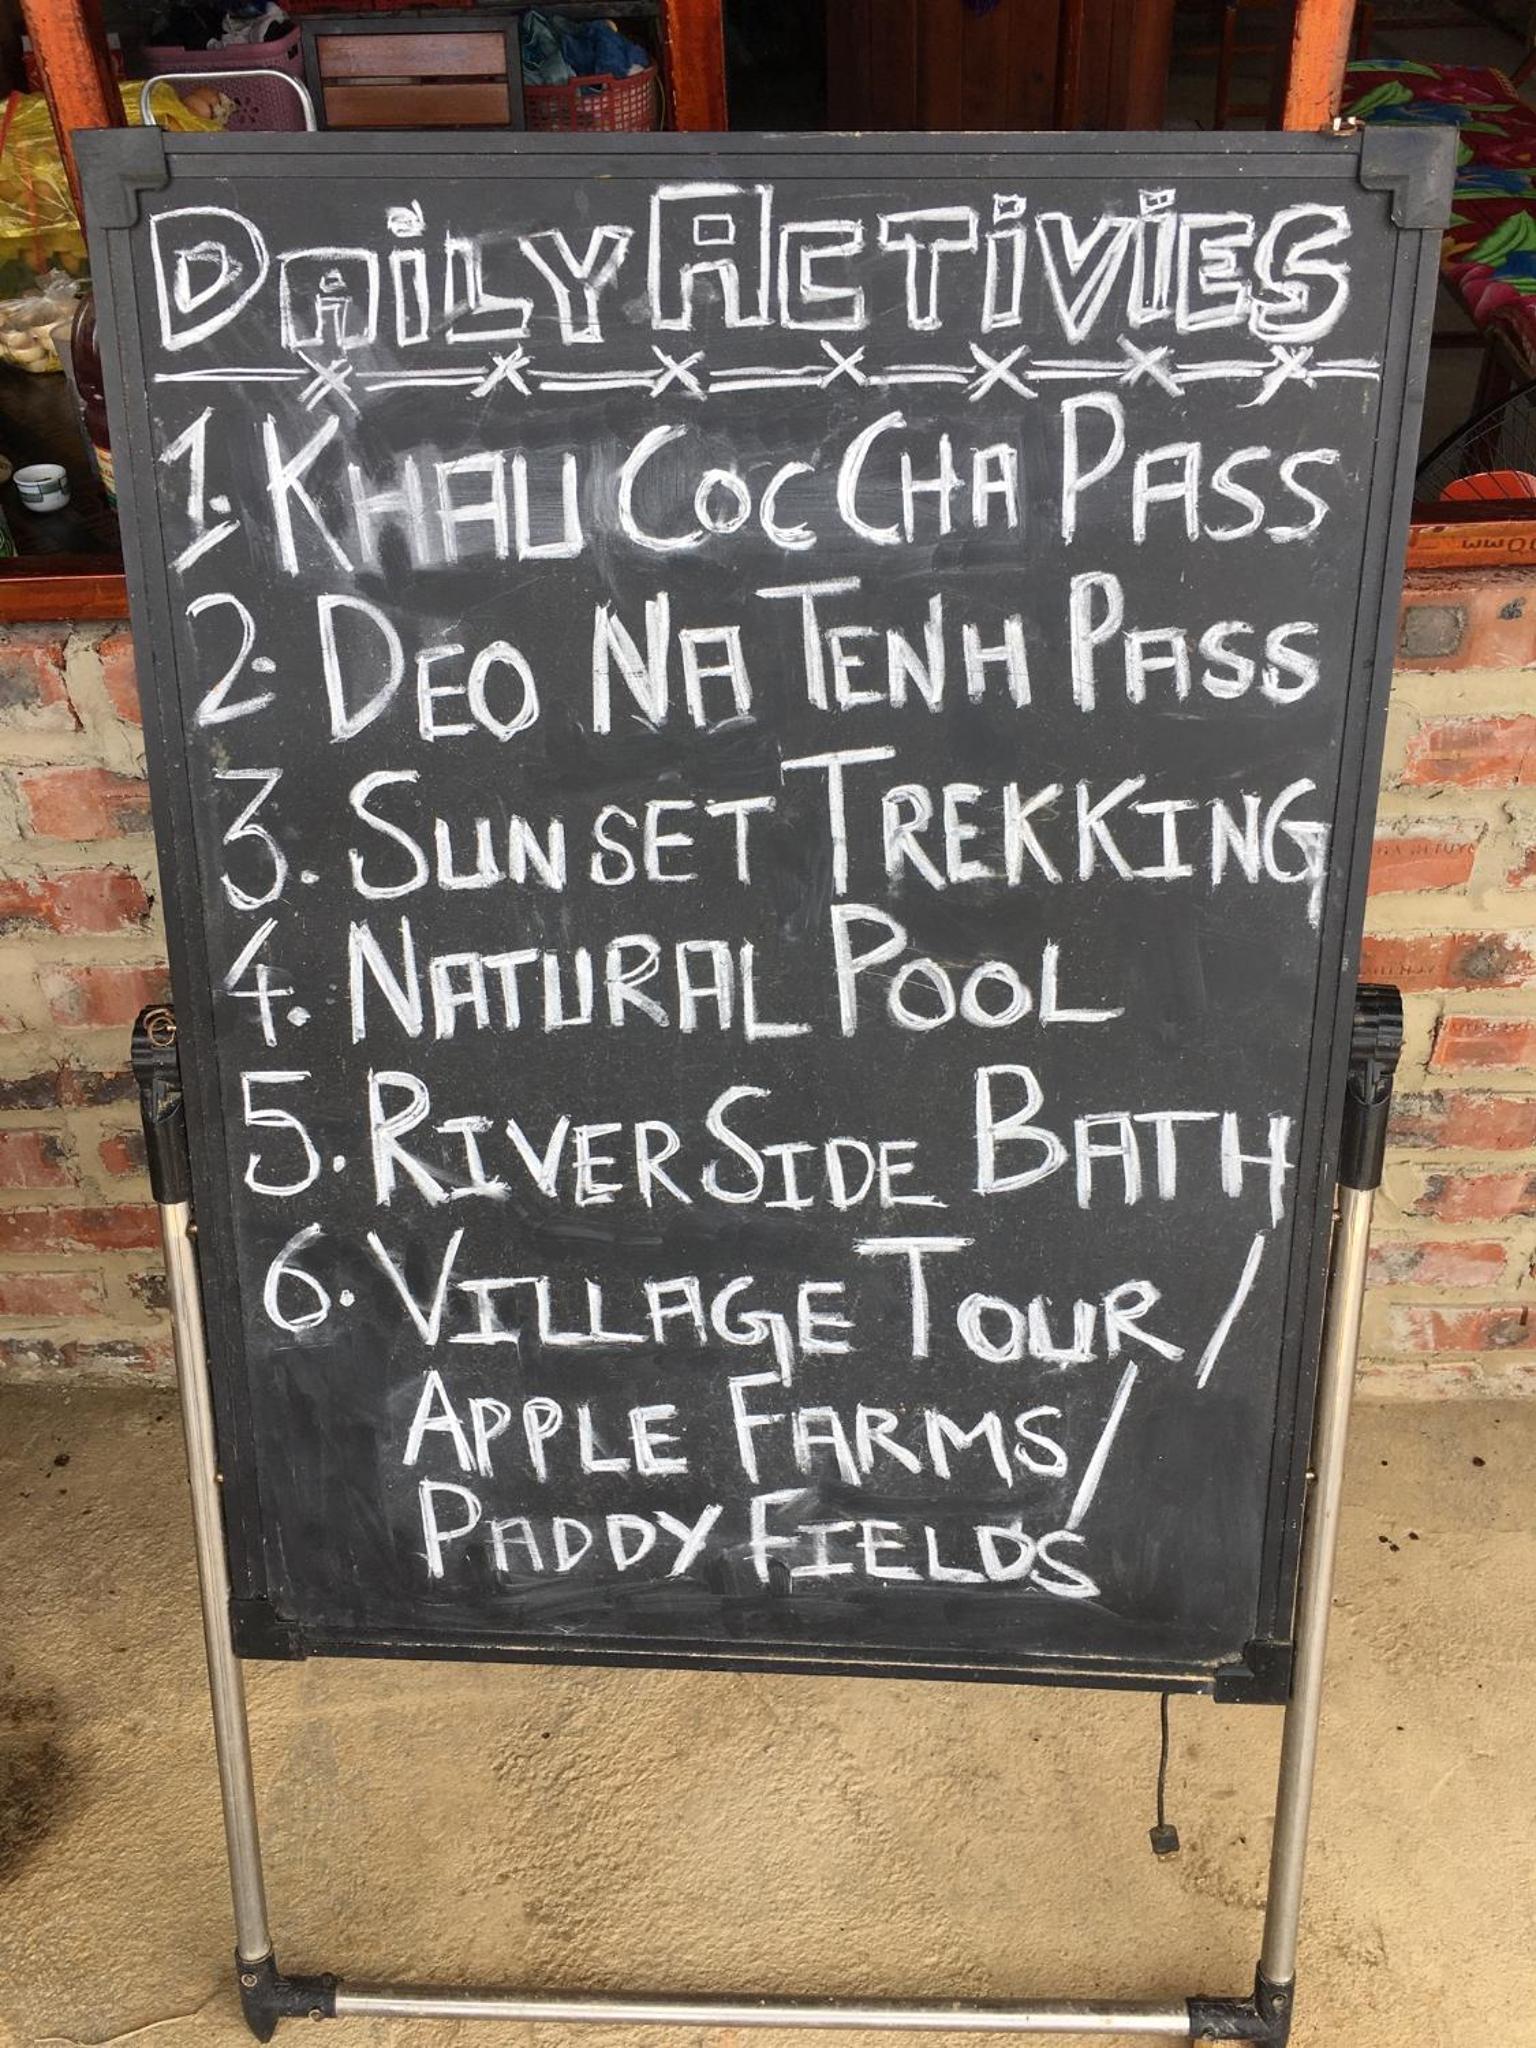 DAILY ACTIVIES
1. KHAU COC CHA PASS
2. DEO NA TENH PASS
3. SUNSET TREKKING
4. NATURAL POOL
5. RIVERSIDE BATH
6. VILLAGE TOUR /
APPLE FARMS /
PADDY FIELDS